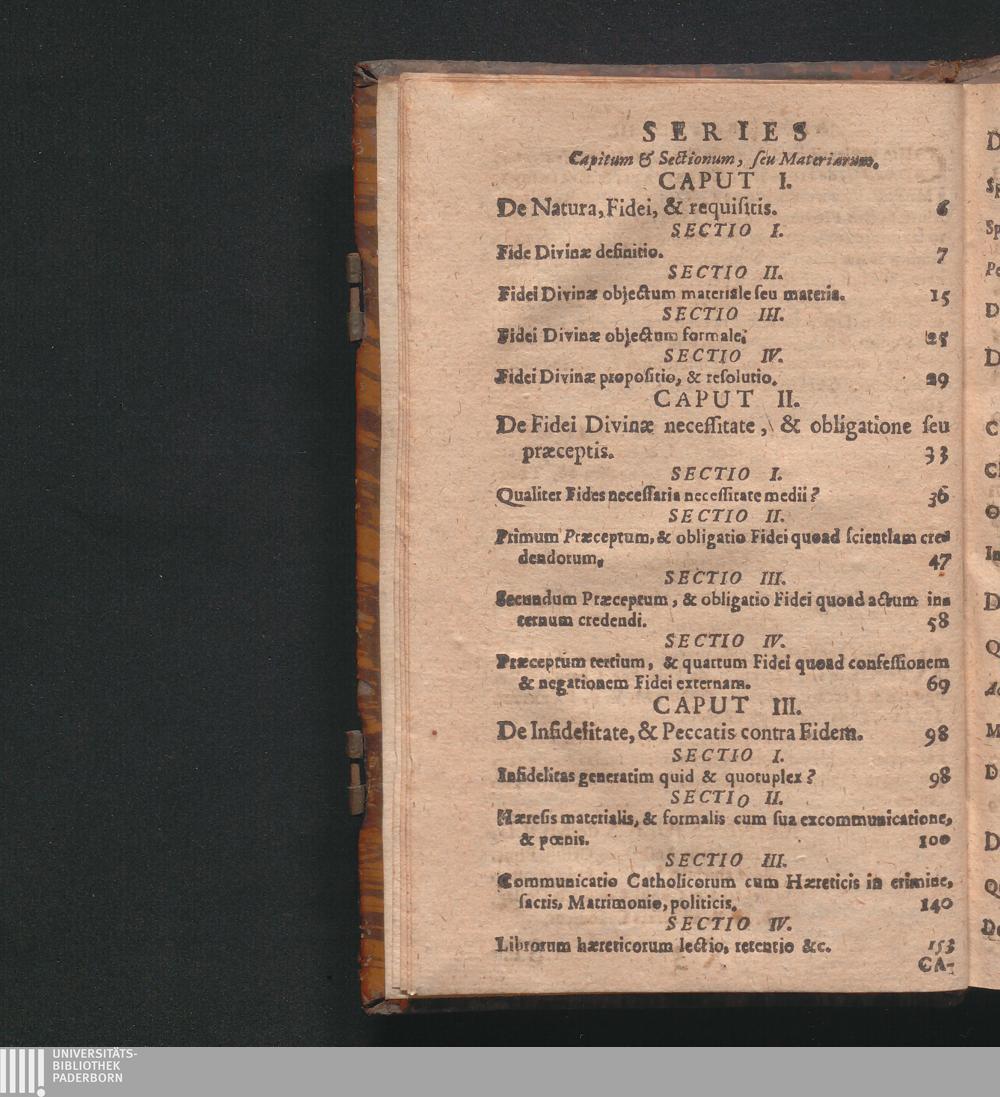 SERIES
Capitum & Sectionum, ſeu Materiarum.
CAPUT I.
De Natura, Fidei, & requiſitis. 6
SECTIO I.
Fide Divinæ definitio. 7
SECTIO II.
Fidei Divinæ objectum materiale ſeu materia. 15
SECTIO III.
Fidei Divinæ objectum formale. 25
SECTIO IV.
Fidei Divinæ propoſitio, & reſolutio. 29
CAPUT II.
De Fidei Divinæ neceſſitate, & obligatione ſeu
præceptis. 33
SECTIO I.
Qualiter Fides neceſſaria neceſſitate medii? 36
SECTIO II.
Primum Præceptum, & obligatio Fidei quoad ſcientiam cre-
dendorum, 47
SECTIO III.
Secundum Præceptum, & obligatio Fidei quoad actum in-
ternum credendi. 58
SECTIO IV.
Præceptum tertium, & quartum Fidei quoad confeſſionem
& negationem Fidei externam. 69
CAPUT III.
De Infidelitate, & Peccatis contra Fidem. 98
SECTIO I.
Infidelitas generatim quid & quotuplex? 98
SECTIO II.
Hæreſis materialis, & formalis cum ſua excommunicatione,
& pœnis. 100
SECTIO III.
Communicatio Catholicorum cum Hæreticis in crimine,
ſacris, Matrimonio, politicis. 140
SECTIO IV.
Librorum hæreticorum lectio, retentio &c. 153
CA-
UNIVERSITÄTS-
BIBLIOTHEK
PADERBORN